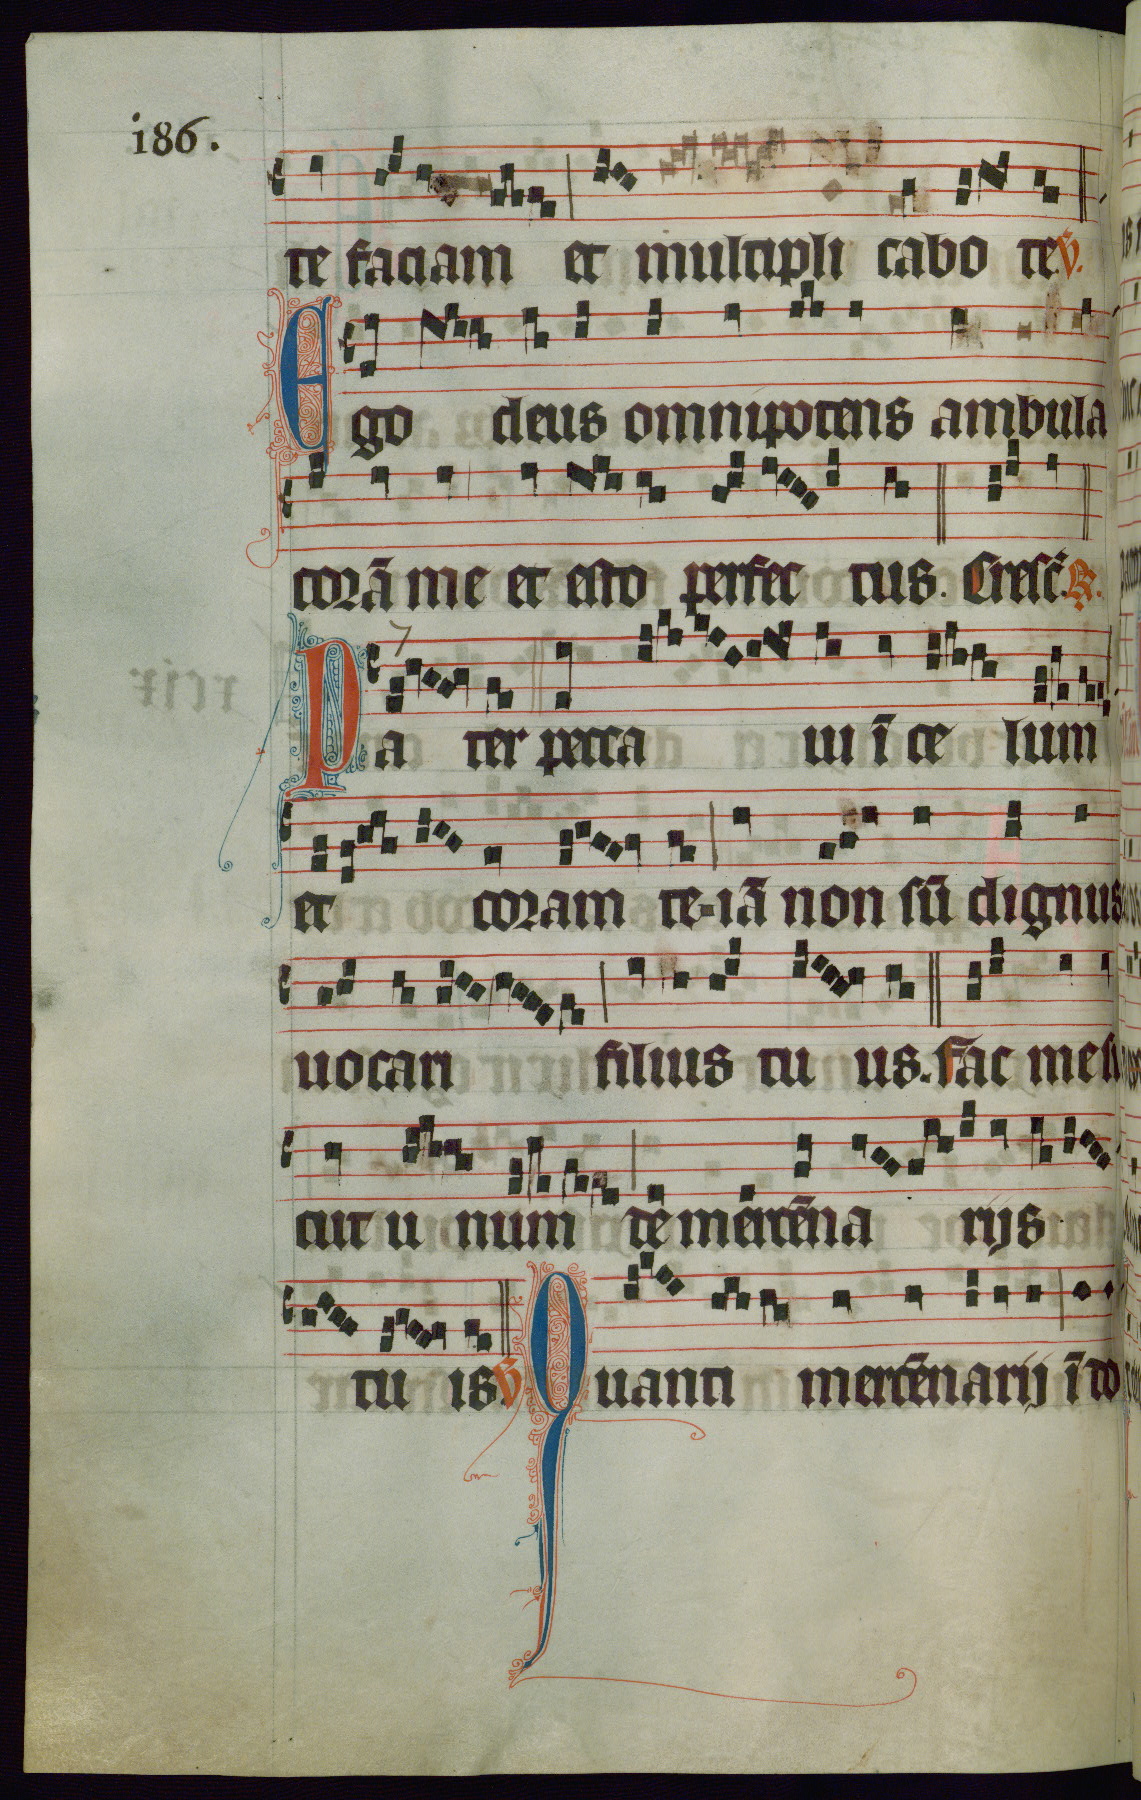 186.
te faciam et multipli cabo te V.
Ego deus omnipotens ambula
corā me et esto perfec tus. Cresc̄. R.
7
Pa ter pecca ui ī ce lum
et coram te-iā non sū dignus
uocari filius tu us. Fac me si
cut u num de mercēna rijs
tu is. V. Quanti mercēnarij ī do